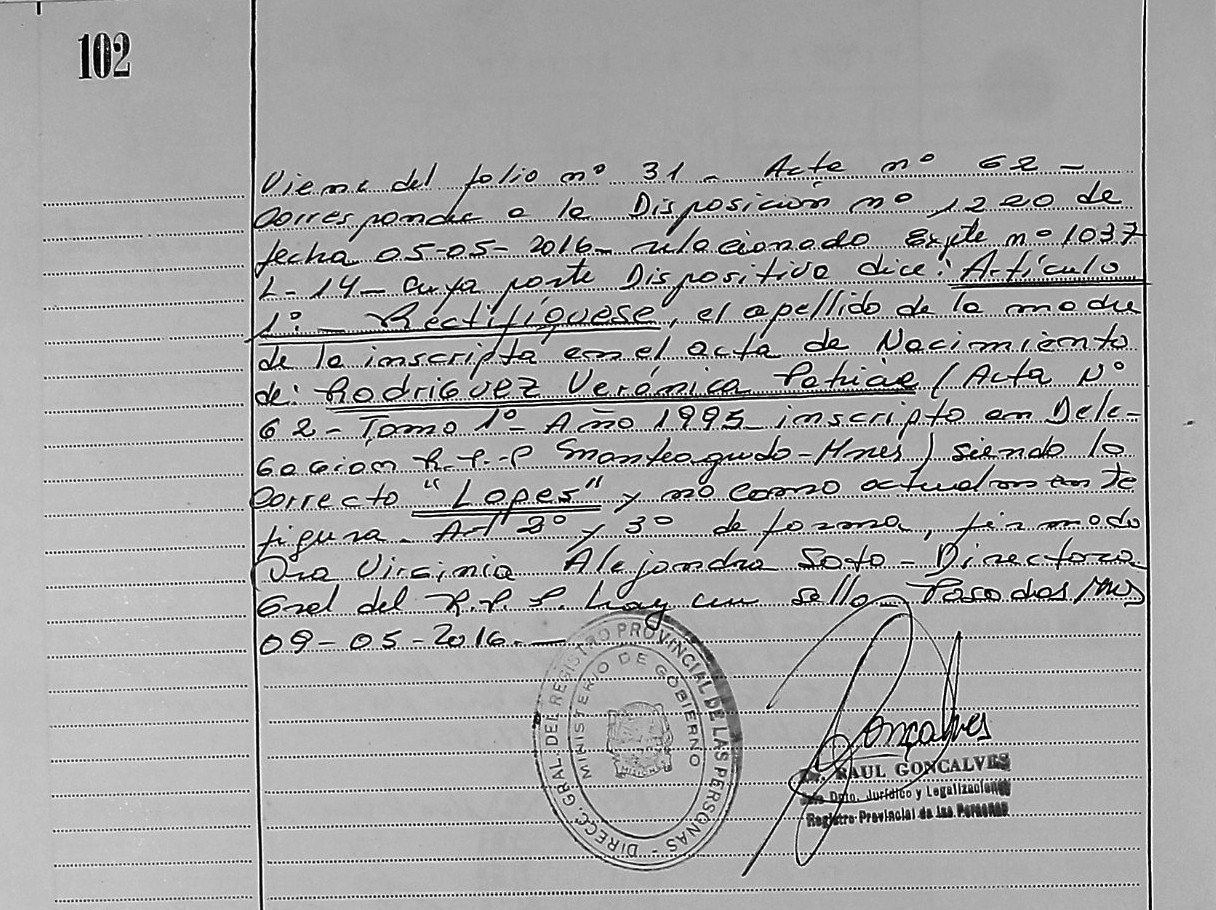 102
Viene del folio nº 31 - Acta nº 62 -
Corresponde a la Disposición nº 1220 de
fecha 05-05-2016 - relacionado Expte nº 1037
L-14 - cuya parte Dispositiva dice: Artículo
1º - Rectifíquese, el apellido de la madre
de la inscripta en el acta de Nacimiento
de: Rodriguez Verónica (Acta Nº
62 - Tomo 1º - Año 1995 inscripto en Dele-
gacion R.P.P Monteagudo - Mnes) siendo lo
Correcto "Lopes" y no como actualmente
figura - Art 2º y 3º de forma, firmado
Dra Virginia Alejandra Soto - Directora
Gral del R.P.P. hay un sello - Posadas/Mnes
09-05-2016. -
DIRECC. GRAL. DEL REGISTRO PROVINCIAL DE LAS PERSONAS -
MINISTERIO DE GOBIERNO
Gonçalves
RAUL GONCALVES
Jefe Dpto. Jurídico y Legalizaciones
Registro Provincial de las Personas